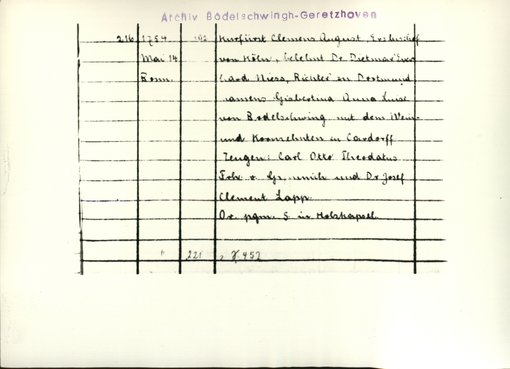 Archiv Bodelschwingh-Geretzhoven
216 1754 Kurfürst Clemens August, Erzbischof
Mai 14. von Köln, belehnt Dr. Dietmar
Bonn. Niess, Richter zu Dortmund
namens Gisbertina Anna Luise
von Bodelschwing mit dem Wein-
und Kornzehnten in Cardorff
Zeugen: Carl Otto Theodatus
Frh. v. und Dr. Josef
Clement Lapp.
Or. pgm. S. in Holzkapsel.
" 221